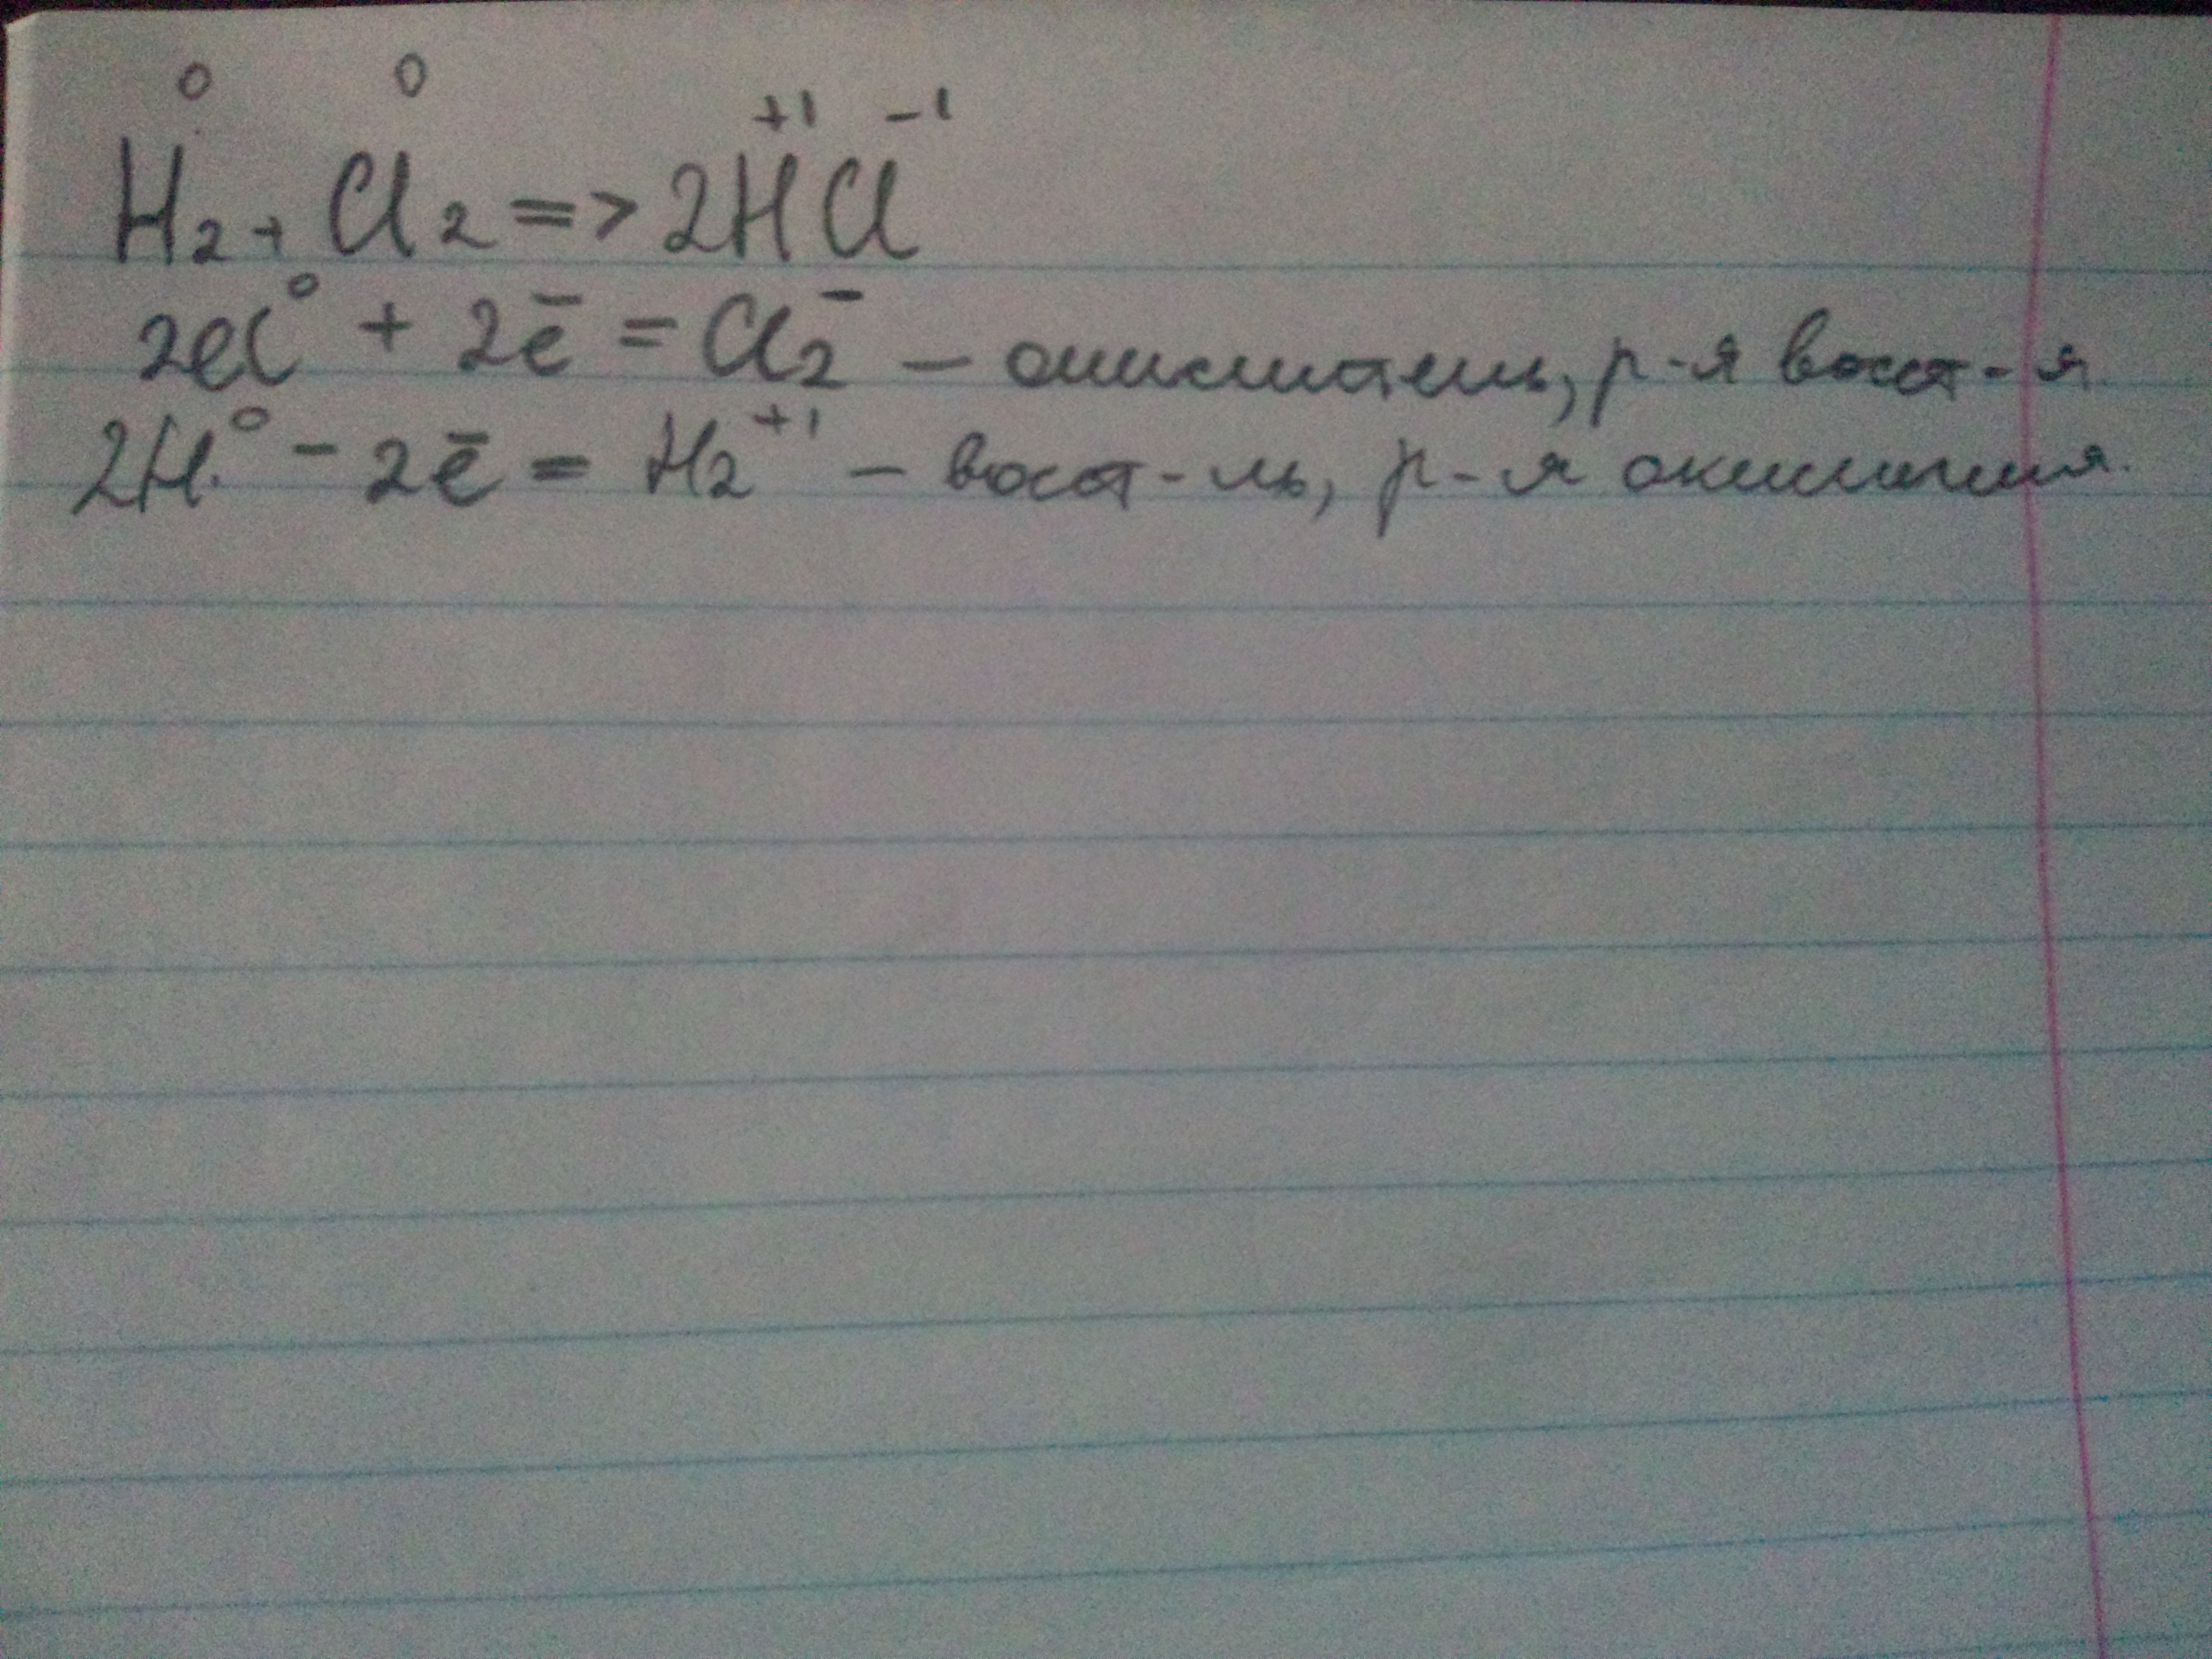 H₂⁰ + Cl₂⁰ => 2H⁺¹Cl⁻¹
2Cl⁰ + 2ē = Cl₂⁻ – окислитель, р-я восст-я.
2H⁰ - 2ē = H₂⁺¹ – восст-ль, р-я окисления.